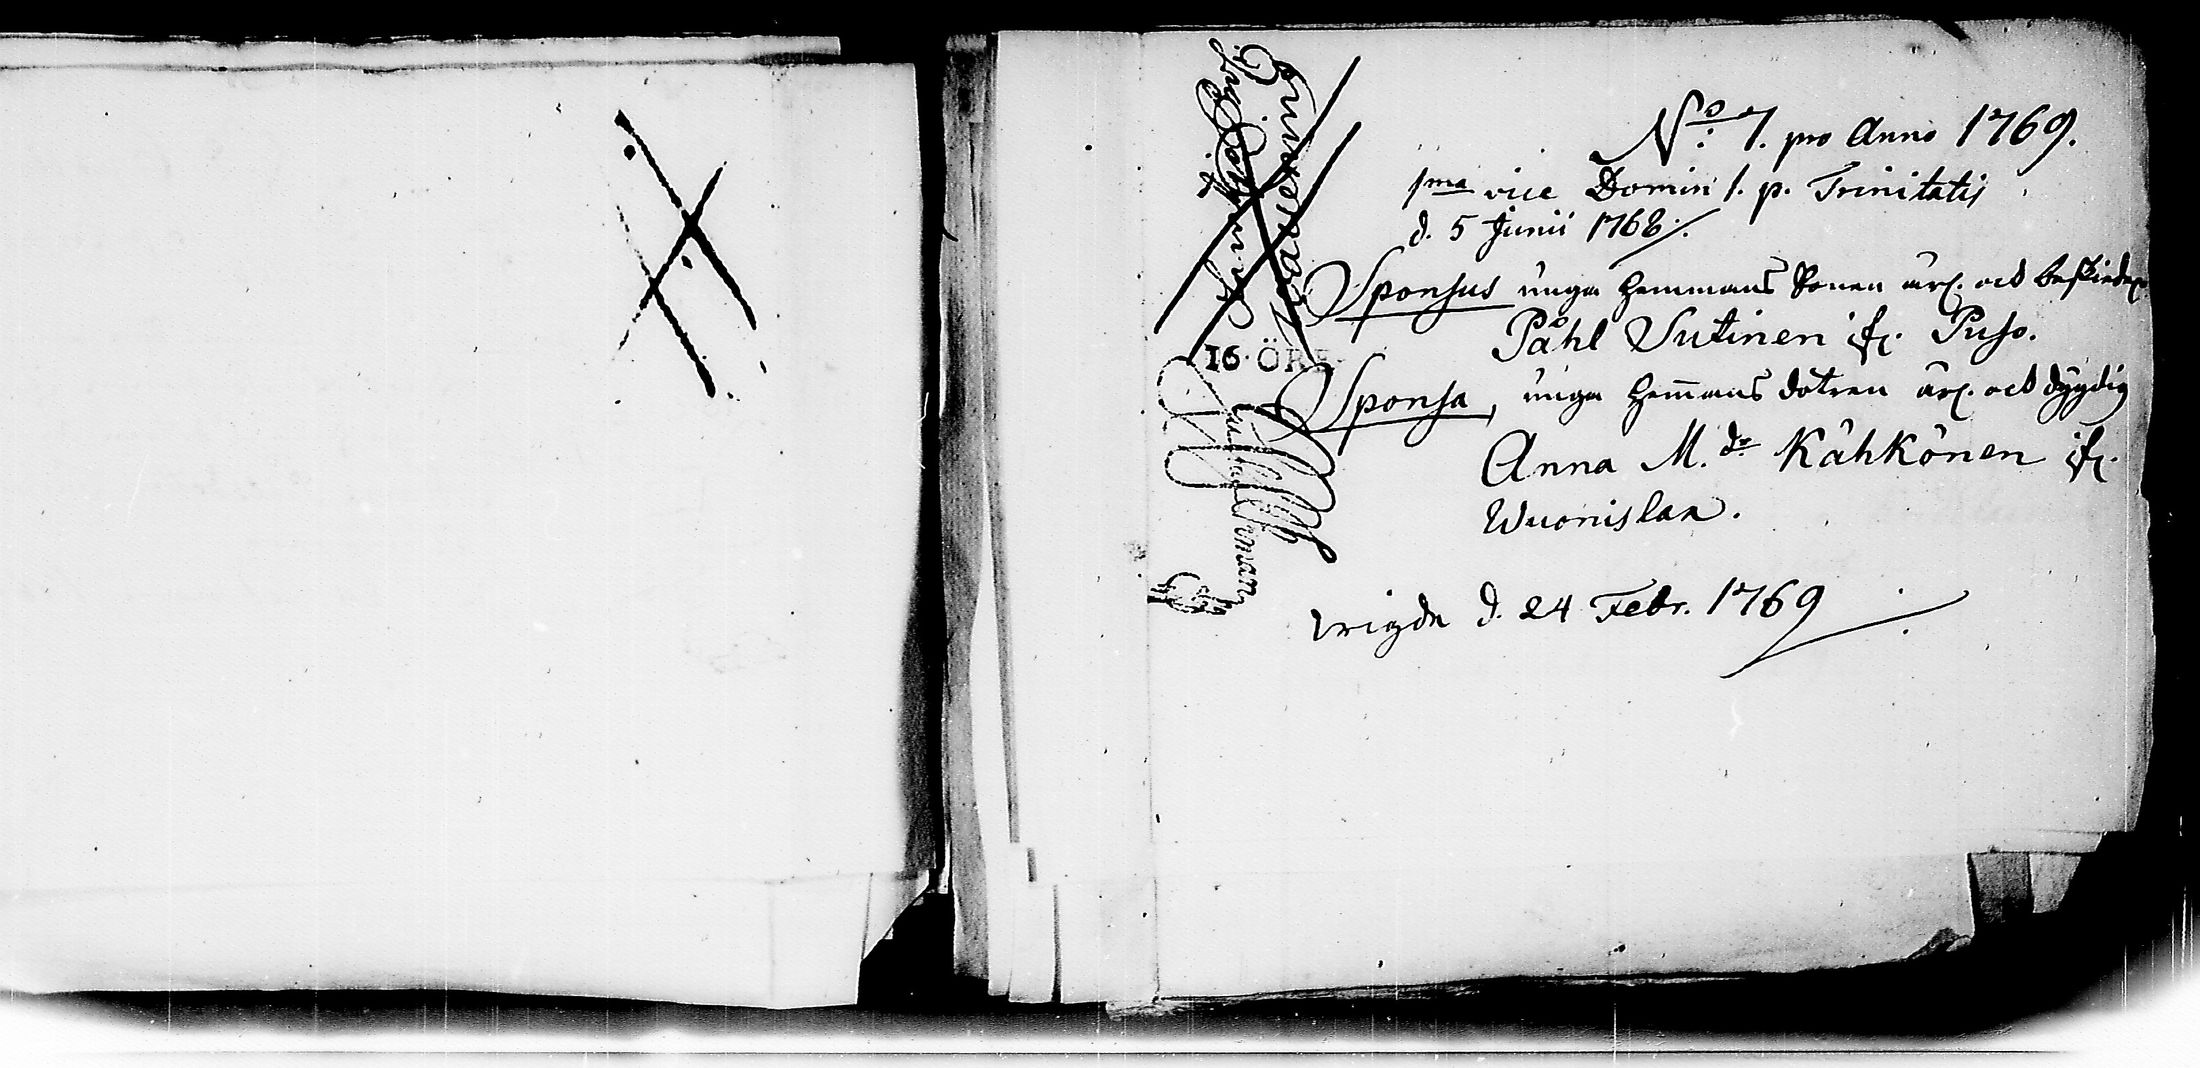 No: 7. pro Anno 1769.
1ma vice Domin 1. p. Trinitatis
d. 5 Junii 1768.
Sponsus unga Hemmans Sonen ärl. och beskiedel.
Påhl Sutinen ifr. Puso.
Sponsa, unga Hem̄ans dotren ärl. och dygdig
Anna M. dr Kåhkönen ifr.
Wuonislax.
wigde d. 24 Febr. 1769
16 ÖRE